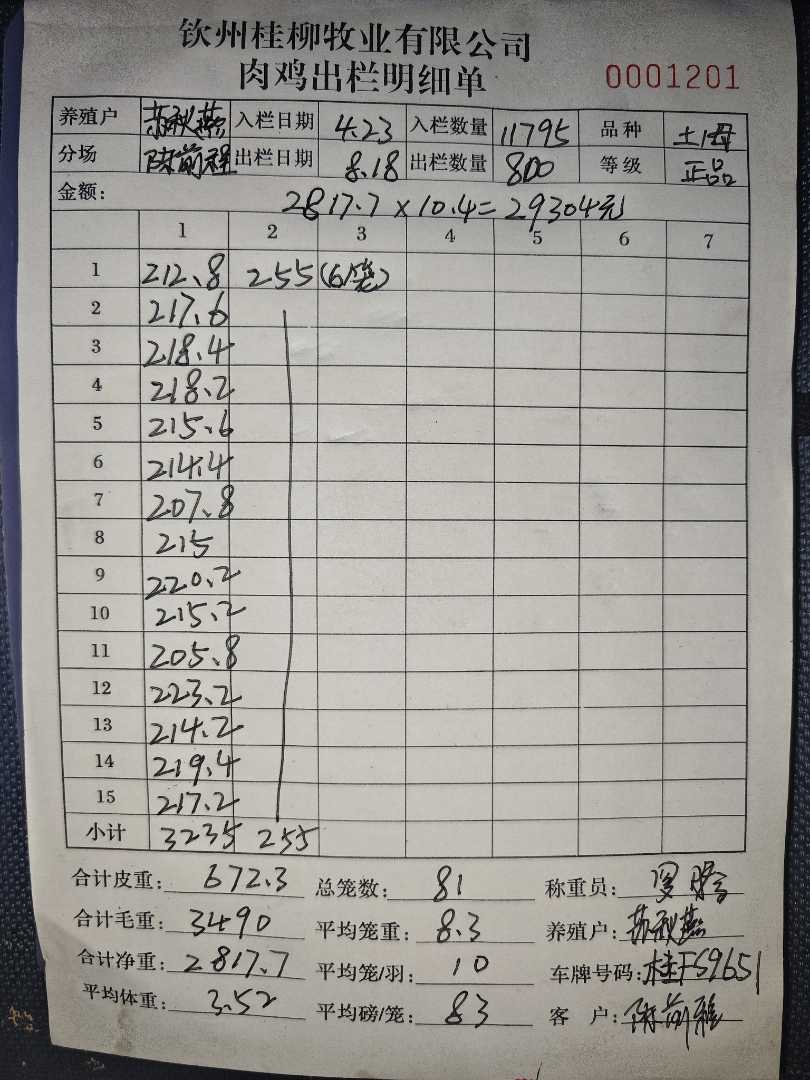 钦州桂柳牧业有限公司
肉鸡出栏明细单 0001201
养殖户 苏秋燕 入栏日期 4.23 入栏数量 11795 品种 土1母
分场 陈前程 出栏日期 8.18 出栏数量 800 等级 正品
金额: 2817.7 × 10.4 = 29304元
1 2 3 4 5 6 7
1 212.8 255 (6/笼)
2 217.6
3 218.4
4 218.2
5 215.6
6 214.4
7 207.8
8 215
9 220.2
10 215.2
11 205.8
12 223.2
13 214.2
14 219.4
15 217.2
小计 3235 255
合计皮重: 672.3 总笼数: 81 称重员:
合计毛重: 3490 平均笼重: 8.3 养殖户: 苏秋燕
合计净重: 2817.7 平均笼/羽: 10 车牌号码: 桂FS9651
平均体重: 3.52 平均磅/笼: 83 客 户: 陈前程